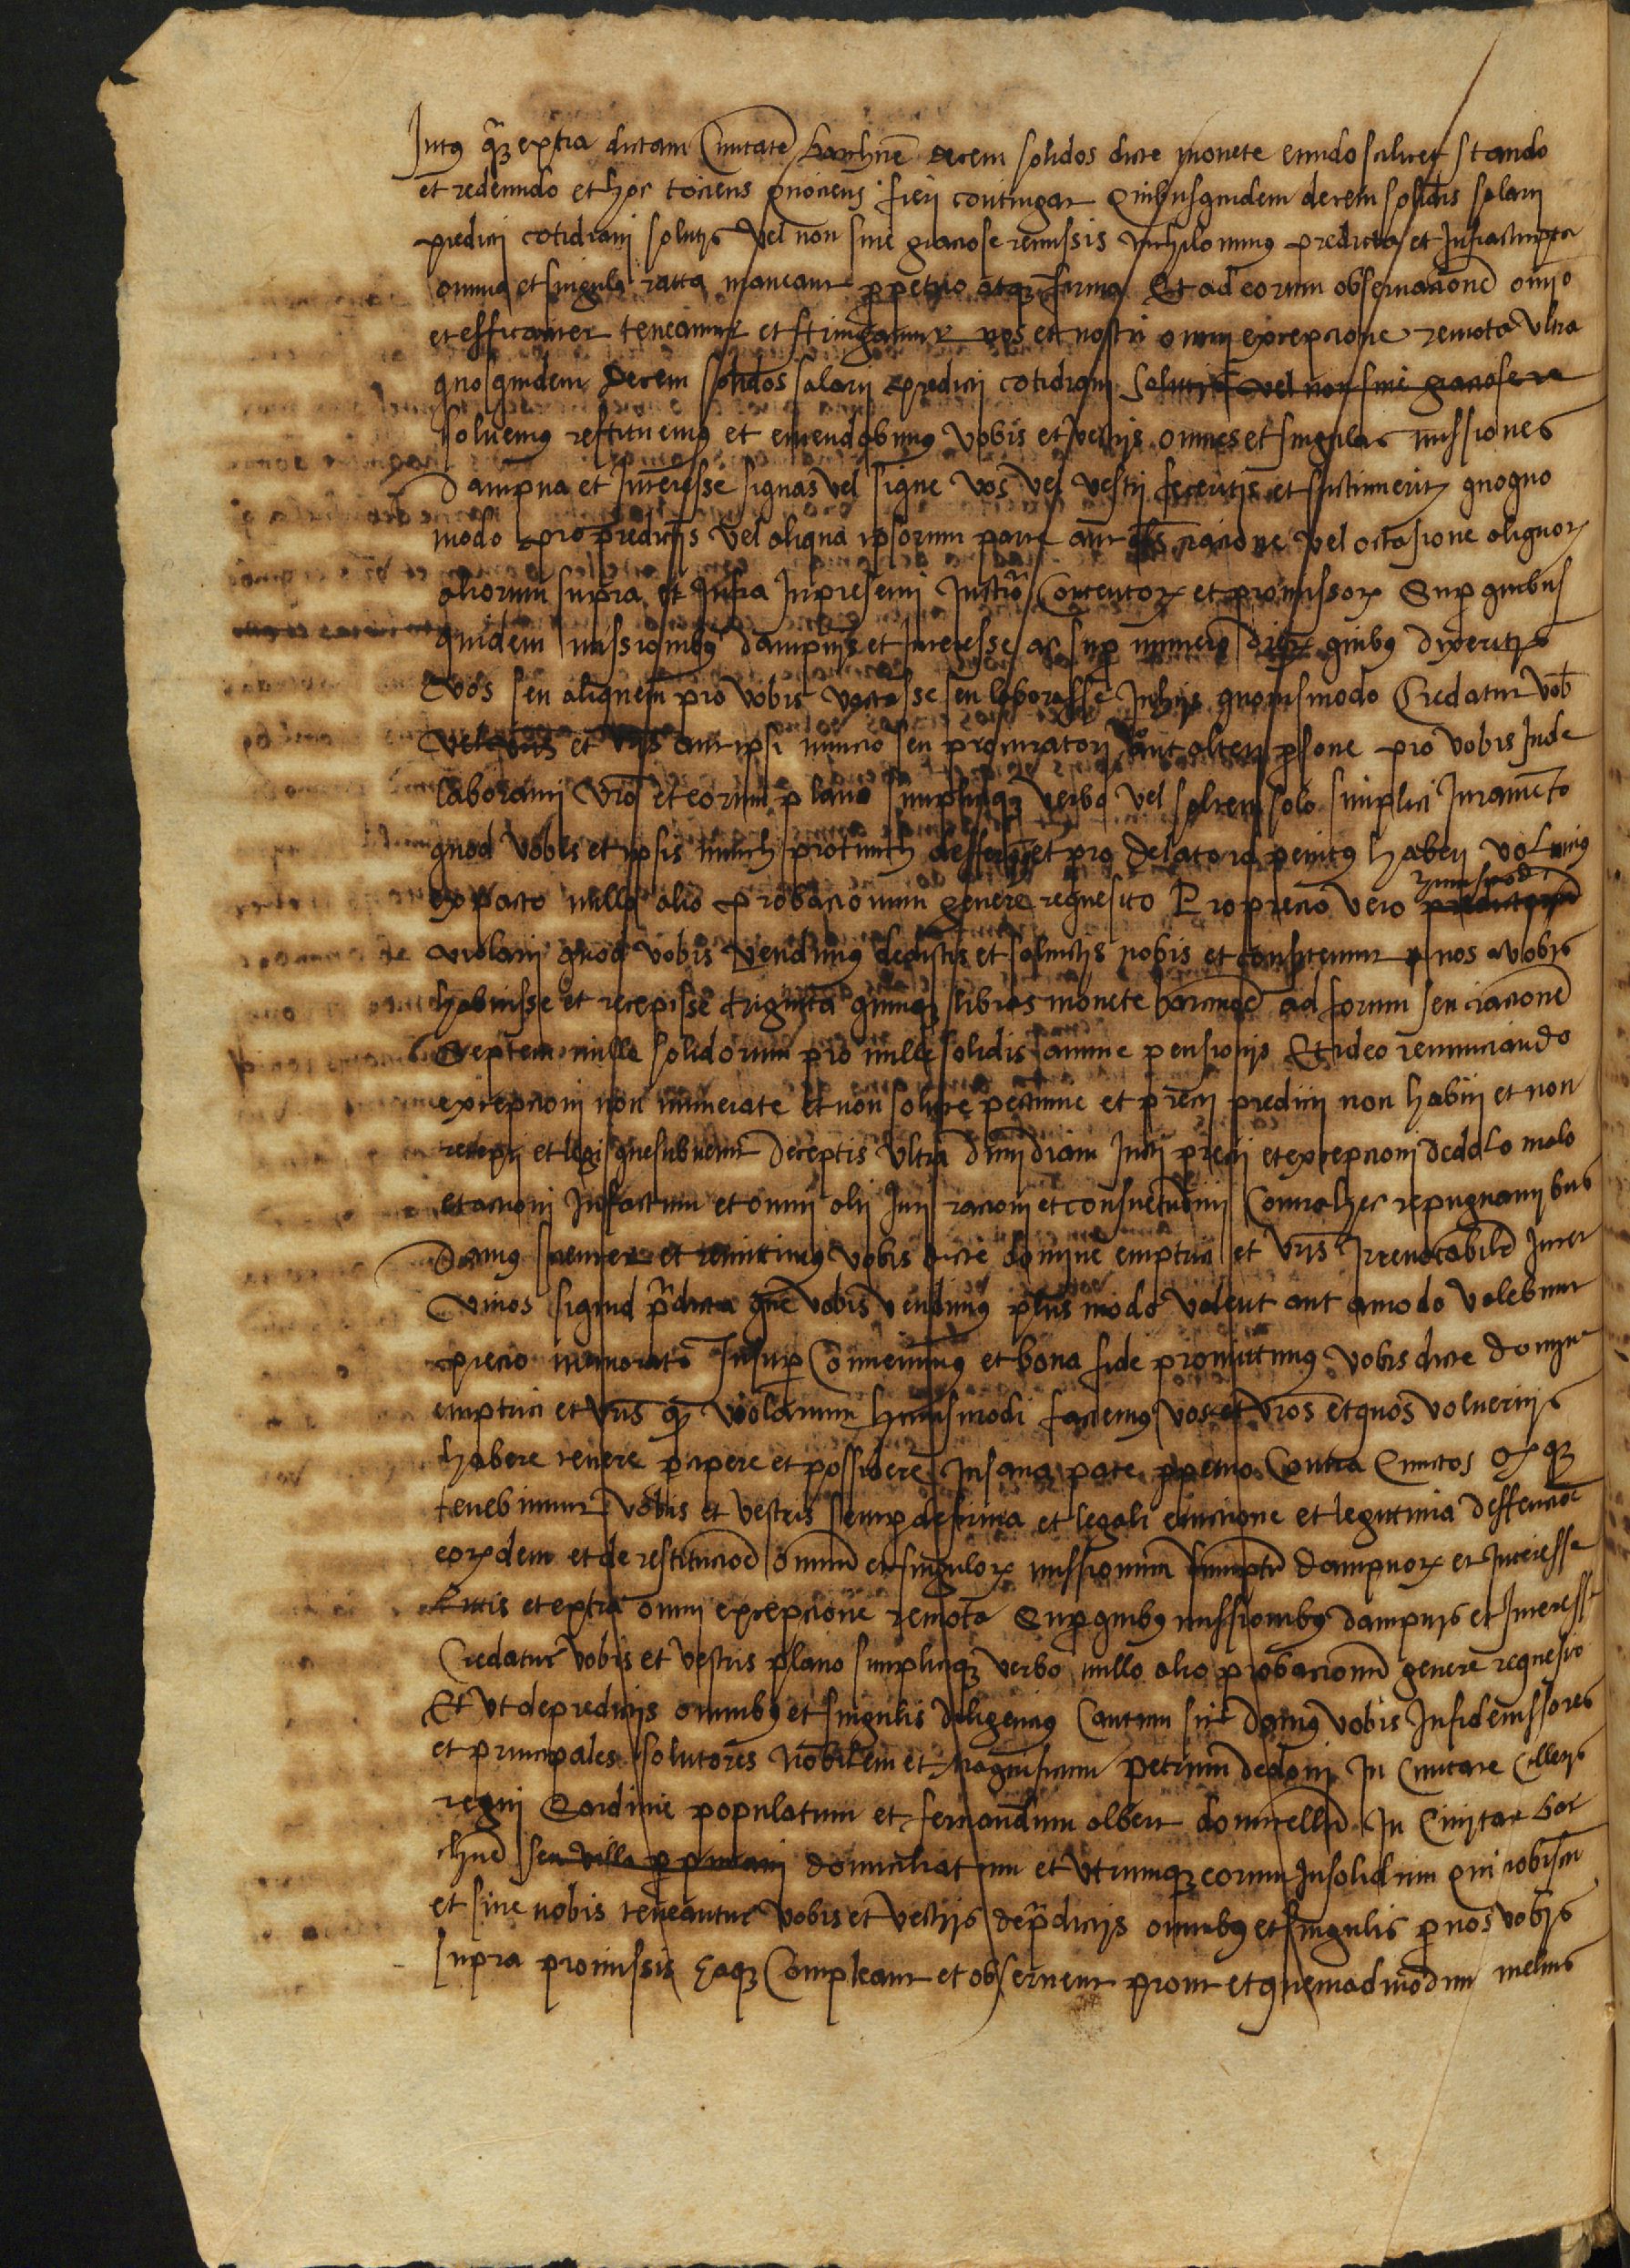 Intus q̃z extra dictam Civitatẽ barchñe decem solidos dicte monete eundo scilicet stando
et redeundo et hoc tociens quociens fieri contingat Quibusquidem decem solidis salarii
predicti cotidiani solutis vel non sive graciose remissis nichilominus predicta et Infrascripta
omnia et singula ratta maneant perpetuo atqz firma Et ad eorum observacionẽ omnio
et efficaciter teneamur et stringamur nos et nostri omni excepcione remota Ultra
quosquidem decem solidos salarii predicti cotidiani solutis vel non sive graciose re
solvemus restituemus et emendabimus vobis et vestris omnes et singulas missiones
dampna et Interesse siquas vel siqne vos vel vestri feceritis et sustinueritz quoquo
modo pro predictis vel aliqua ipsorum parte aut als racione vel occasione aliquorz
aliorum supra et Infra Inpresenti Instrõ Contentorz et promissorz Sup quibus
quidem missionibus dampnis et Interesse ac sup numero dierz quibus dixeritis
Vos seu aliquem pro vobis vacasse seu laborasse Inhiis quovismodo Credatur vob
vel vris et vris aut ipsi nuncio seu procuratori aut alteri psone pro vobis Inde
laboranti Vro et eorum plano simpliciqz verbo vel saltem solo simplici Iuramẽto
quod vobis et ipsis nunch protunch defferimus et pro delato penitus haberi volumus
ex pacto nullo alio probacionum genere requesito Pro precio vero huiusmodi predictorum
violarii quod vobis vendimus dedistis et solvistis nobis et confitemur nos a vobis
habuisse et recepisse triginta quinqz libras monete barcinoẽ ad forum seu racionẽ
Septem mille solidorum pro mille solidis annue pensionis Et ideo renunciando
excepcioni non numerate et non solute pecunie et precii predicti non habiti et non
recepti et legi que subvenit deceptis ultra dimidiam Iusti precii et excepcioni de dolo malo
et accioni Infactum et omni alii Iuri racioni et consuetudini Contra hec repugnantibus
Damus et remittimus vobis dicte domine emptrici et vris Irrevocabilẽ Inter
vivos siquid p̃dicta que vobis vendimus plus modo valent aut amodo valebunt
precio memorato Insup Convenimus et bona fide promittimus vobis dicte domine
emptrici et vris q̃ violarium huiusmodi faciemus vos et vros et quos volueritis
habere tenere pcipere et possidere Insana pace ppetuo Contra Cunctos
tenebimur vobis et vestris semp de firma et legali eviccione et legittima deffencioẽ
eorzdem et de restitucioẽ omniũ et singulorz missionum sumptuũ dampnorz et Interesse
Littis et extra omni excepcione remota Sup quibus missionibus dampnis et Interesse
Credatur vobis et vestris plano simpliciqz verbo nullo alio probacionũ genere requesito
Et Ut de predictis omnibus et singulis diligencius Cautum sit Damus vobis Infideiussores
et principales solutores Nobilem et Magnificum petrum dedoni In Civitate Calleris
regni Sardinie populatum et fernandum albert domicellũ In Civitat bar
chñe seu villa domiciliatum et Utrumqz eorum Insolidum Qui nobiscũ
et sine nobis teneantur vobis et vestris de p̃dictis omnibus et singulis p nos vobis
supra promissis Eaqz Compleant et observent prout et quemadmodum melius